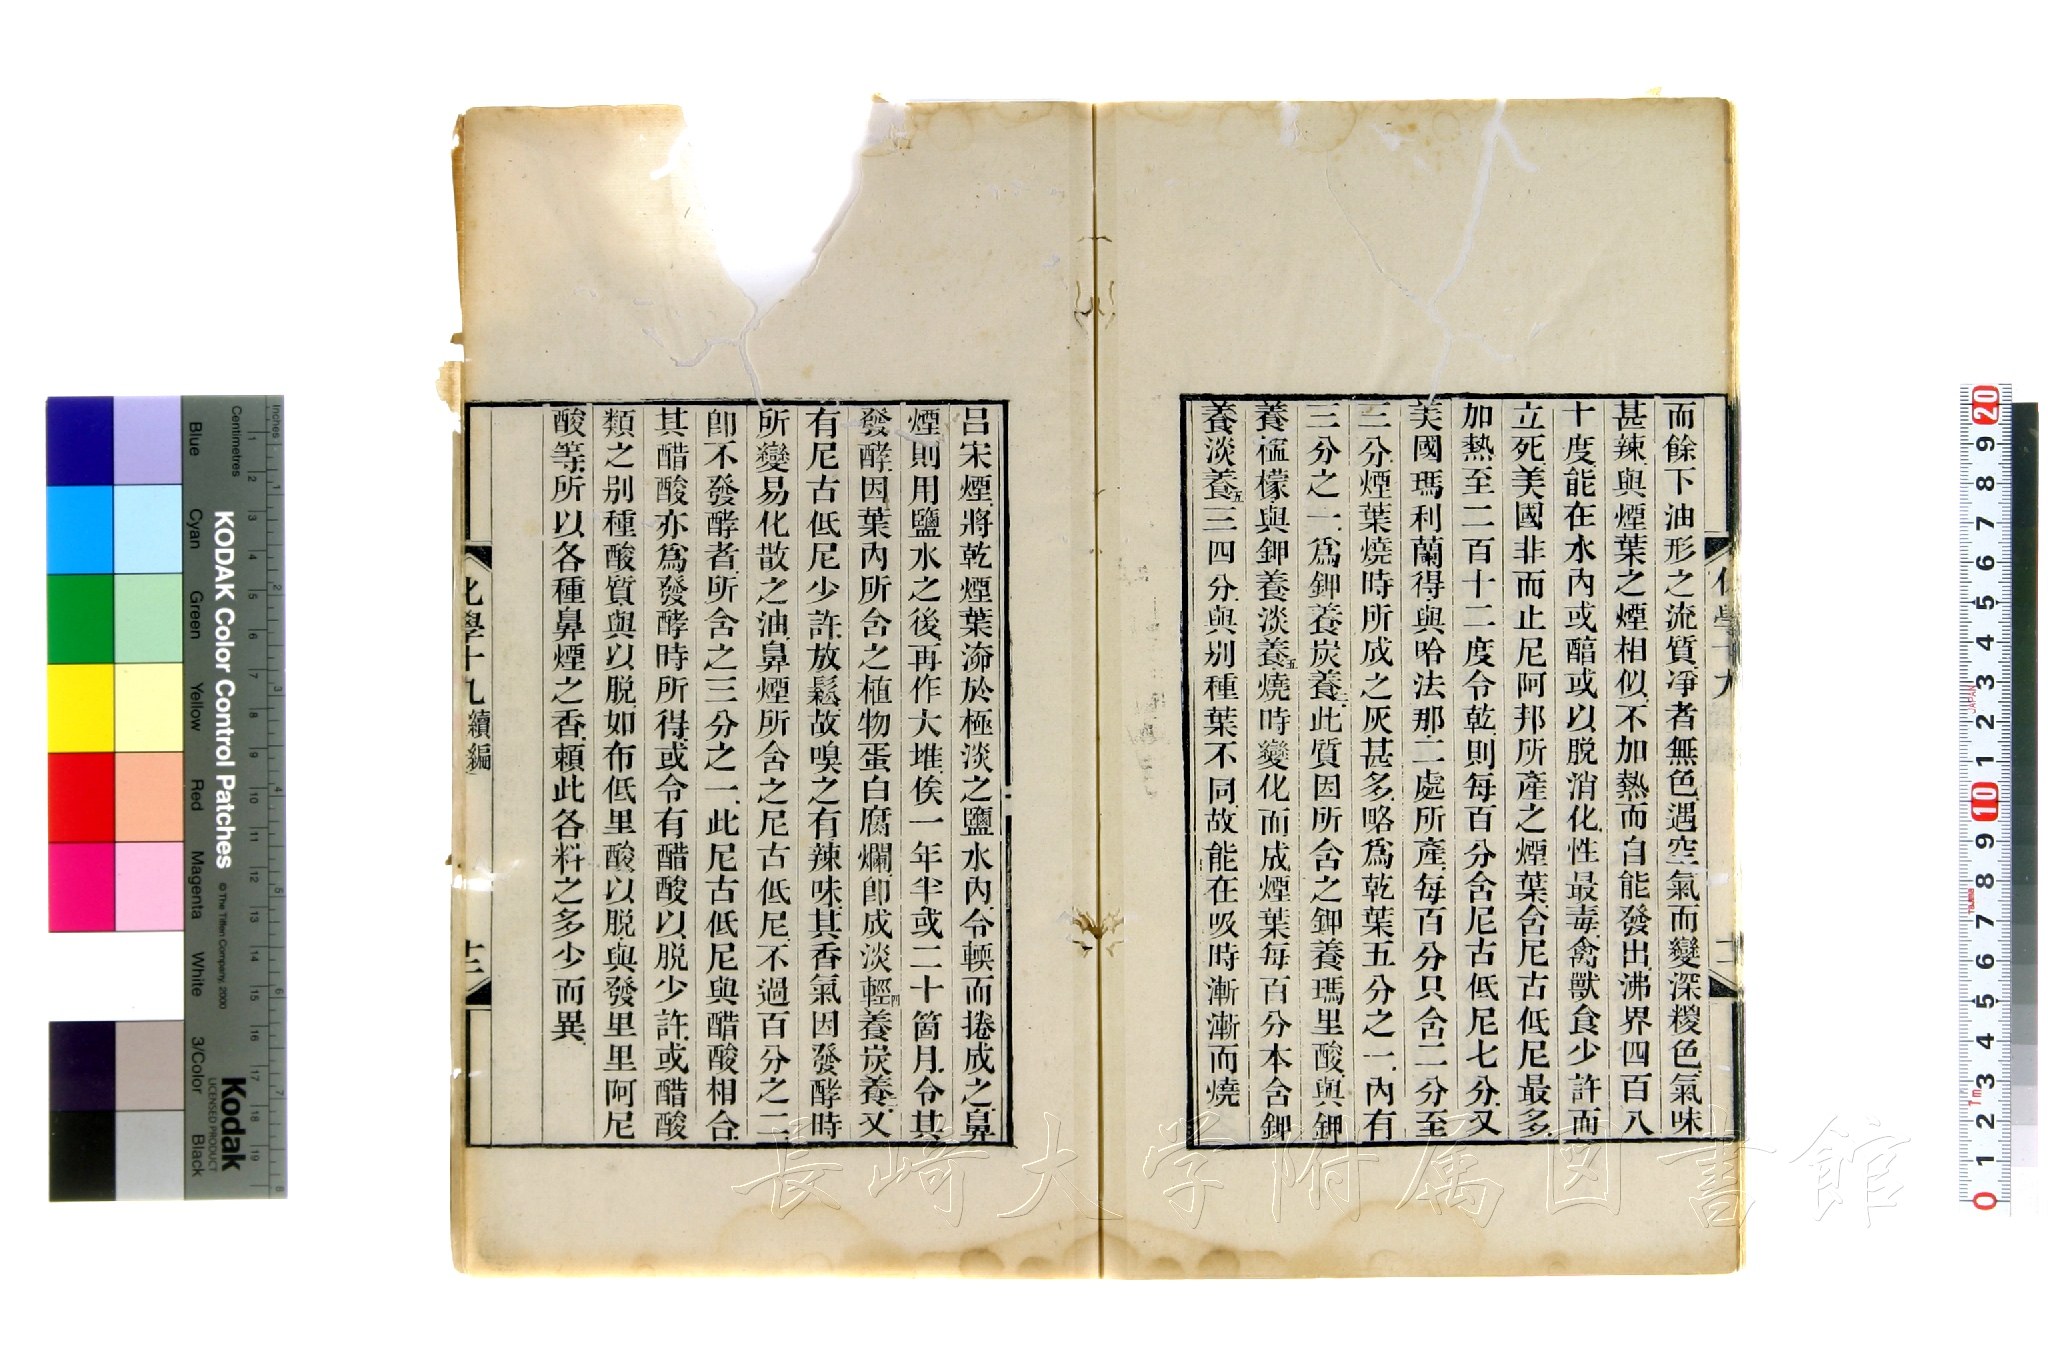 而餘下油形之流質淨者無色遇空氣而變深椶色氣味
甚辣與煙葉之煙相似不加熱而自能發出沸界四百八
十度能在水內或醕或以脫消化性最毒禽獸食少許而
立死美國非而止尼阿邦所產之煙葉含尼古低尼最多
加熱至二百十二度令乾則每百分含尼古低尼七分又
美國瑪利蘭得與哈法那二處所產每百分只含二分至
三分煙葉燒時所成之灰甚多略爲乾葉五分之一內有
三分之一爲鉀養炭養二此質因所含之鉀養瑪里酸與鉀
養櫁檬與鉀養淡養五燒時變化而成煙葉每百分本含鉀
養淡養五三四分與別種葉不同故能在吸時漸漸而燒
呂宋煙將乾煙葉漭於極淡之鹽水內令輭而捲成之鼻
煙則用鹽水之後再作大堆俟一年半或二十箇月令其
發酵因葉內所含之植物蛋白腐爛卽成淡輕四養炭養二又
有尼古低尼少許放鬆故嗅之有辣味其香氣因發酵時
所變易化散之油鼻煙所含之尼古低尼不過百分之二
卽不發酵者所含之三分之一此尼古低尼與醋酸相合
其醋酸亦爲發酵時所得或令有醋酸以脫少許或醋酸
類之別種酸質與以脫如布低里酸以脫與發里里阿尼
酸等所以各種鼻煙之香賴此各料之多少而異
化學十九續編
十二
長崎大学附属図書館
KODAK Color Control Patches
© The Tiffen Company, 2000
Kodak
LICENSED PRODUCT
Inches
Centimetres
Blue
Cyan
Green
Yellow
Red
Magenta
White
3/Color
Black